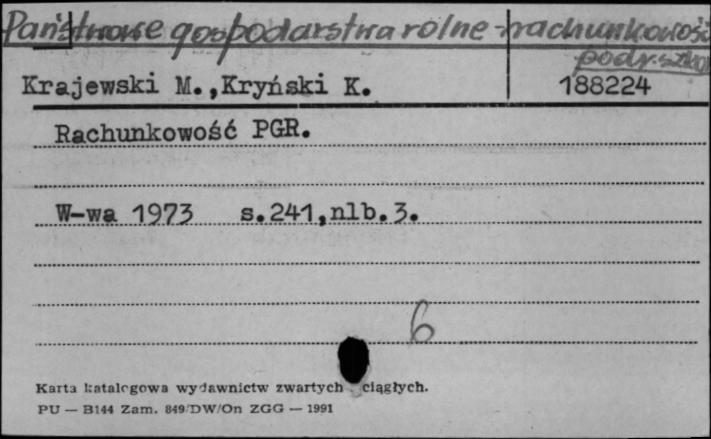 Państwowe gospodarstwa rolne - rachunkowość
podr. szkol
Krajewski M.,Kryński K. 188224
Rachunkowość PGR.
W-wa 1973 s.241,nlb.3.
6
Karta katalogowa wydawnictw zwartych ciągłych.
PU — B144 Zam. 849/DW/On ZGG — 1991